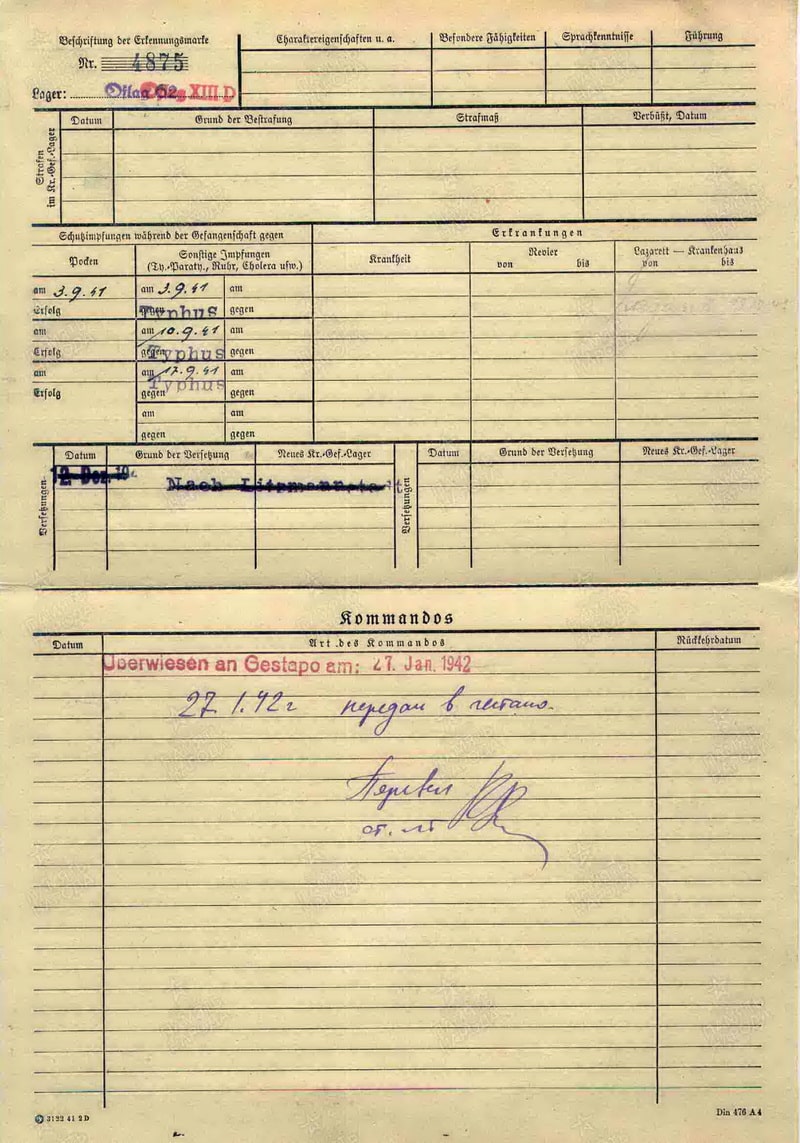 Beschriftung der Erkennungsmarke
Nr. 4875
Lager: Oflag 62 Oflag XIII D
Charaktereigenschaften u. a.
Besondere Fähigkeiten
Sprachkenntnisse
Führung
Strafen im Kr.-Gef.-Lager
Datum
Grund der Bestrafung
Strafmaß
Verbüßt, Datum
Schutzimpfungen während der Gefangenschaft gegen
Erkrankungen
Pocken
Sonstige Impfungen
(Ty.-Paraty., Ruhr, Cholera usw.)
Krankheit
Revier
von bis
Lazarett — Krankenhaus
von bis
am 3.9.41 am 3.9.41 am
Erfolg Typhus gegen
am am 10.9.41 am
Erfolg gegen Typhus gegen
am am 17.9.41 am
Erfolg gegen Typhus gegen
am am
gegen gegen
Versetzungen
Datum
Grund der Versetzung
Neues Kr.-Gef.-Lager
Versetzungen
Datum
Grund der Versetzung
Neues Kr.-Gef.-Lager
12. Dez. 19
Nach Litzmannstadt
Kommandos
Datum
Art des Kommandos
Rückkehrdatum
Überwiesen an Gestapo am: 27. Jan. 1942
27.1.42 г передан в гестапо.
Перевел
ст. лт
3122 41 2D
Din 476 A4